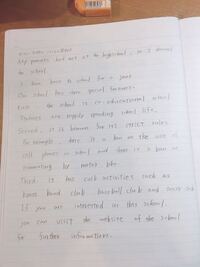 My parents had met at the highschool, so I decided
to school.
I have been to school for a year.
Our school has three special features.
First, the school is co-educational school
Students are enjoy spending school life.
Second, it is known for its strict rules.
For example, there is a ban on the use of
cell phones in school and there is a ban on
commuting by motor bike.
Third, it has club activities such as
brass band club, baseball club and soccer club
If you are interested in this school,
you can visit the website of the school
for further informations.